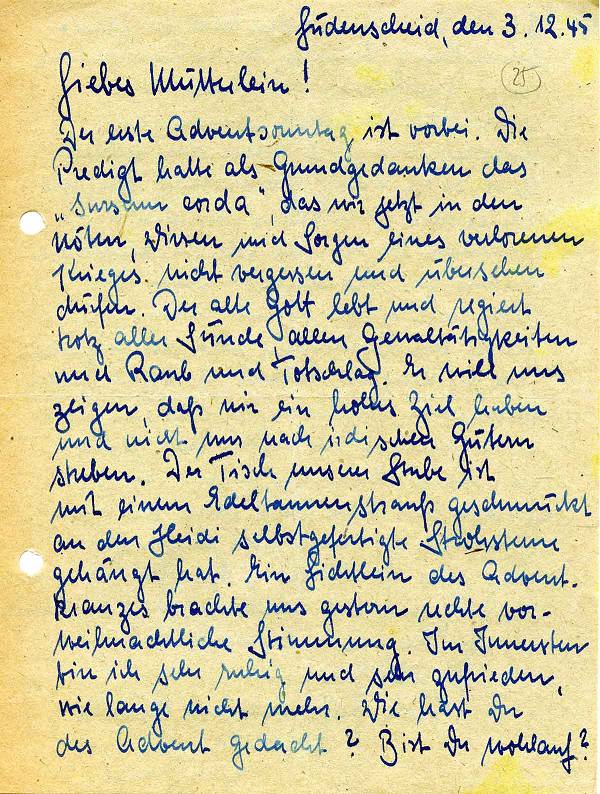 Lüdenscheid, den 3.12.45
25
Liebes Mütterlein!
Der erste Adventsonntag ist vorbei. Die
Predigt hatte als Grundgedanken das
„Sursum corda", das wir jetzt in den
Nöten, Wirren und Sorgen eines verlorenen
Krieges nicht vergessen und übersehen
dürfen. Der alte Gott lebt und regiert
trotz aller Sünde, allen Gewalttätigkeiten
und Raub und Totschlag. Er will uns
zeigen, daß wir ein hohes Ziel haben
und nicht nur nach irdischen Gütern
streben. Der Tisch unserer Stube ist
mit einem Edeltannenstrauß geschmückt
an den Heidi selbstgefertigte Strohsterne
gehängt hat. Ein Lichtlein des Advent-
kranzes brachte uns gestern rechte vor-
weihnachtliche Stimmung. Im Innersten
bin ich sehr ruhig und sehr zufrieden,
wie lange nicht mehr. Wie hast Du
des Advent gedacht? Bist Du wohlauf?